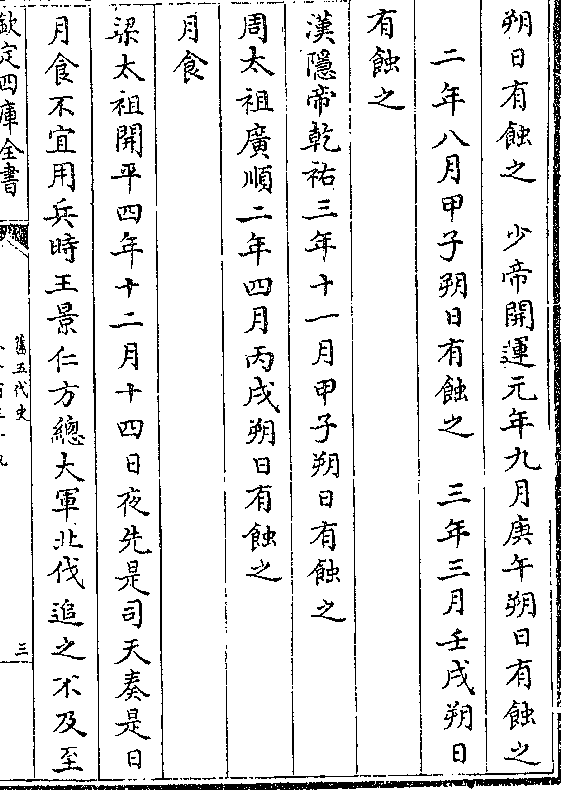 朔日有蝕之　少帝開運元年九月庚午朔日有蝕之
二年八月甲子朔日有蝕之　三年三月壬戌朔日
有蝕之
漢隱帝乾祐三年十一月甲子朔日有蝕之
周太祖廣順二年四月丙戌朔日有蝕之
月食
梁太祖開平四年十二月十四日夜先是司天奏是日
月食不宜用兵時王景仁方總大軍北伐追之不及至
欽定四庫全書
舊五代史
三